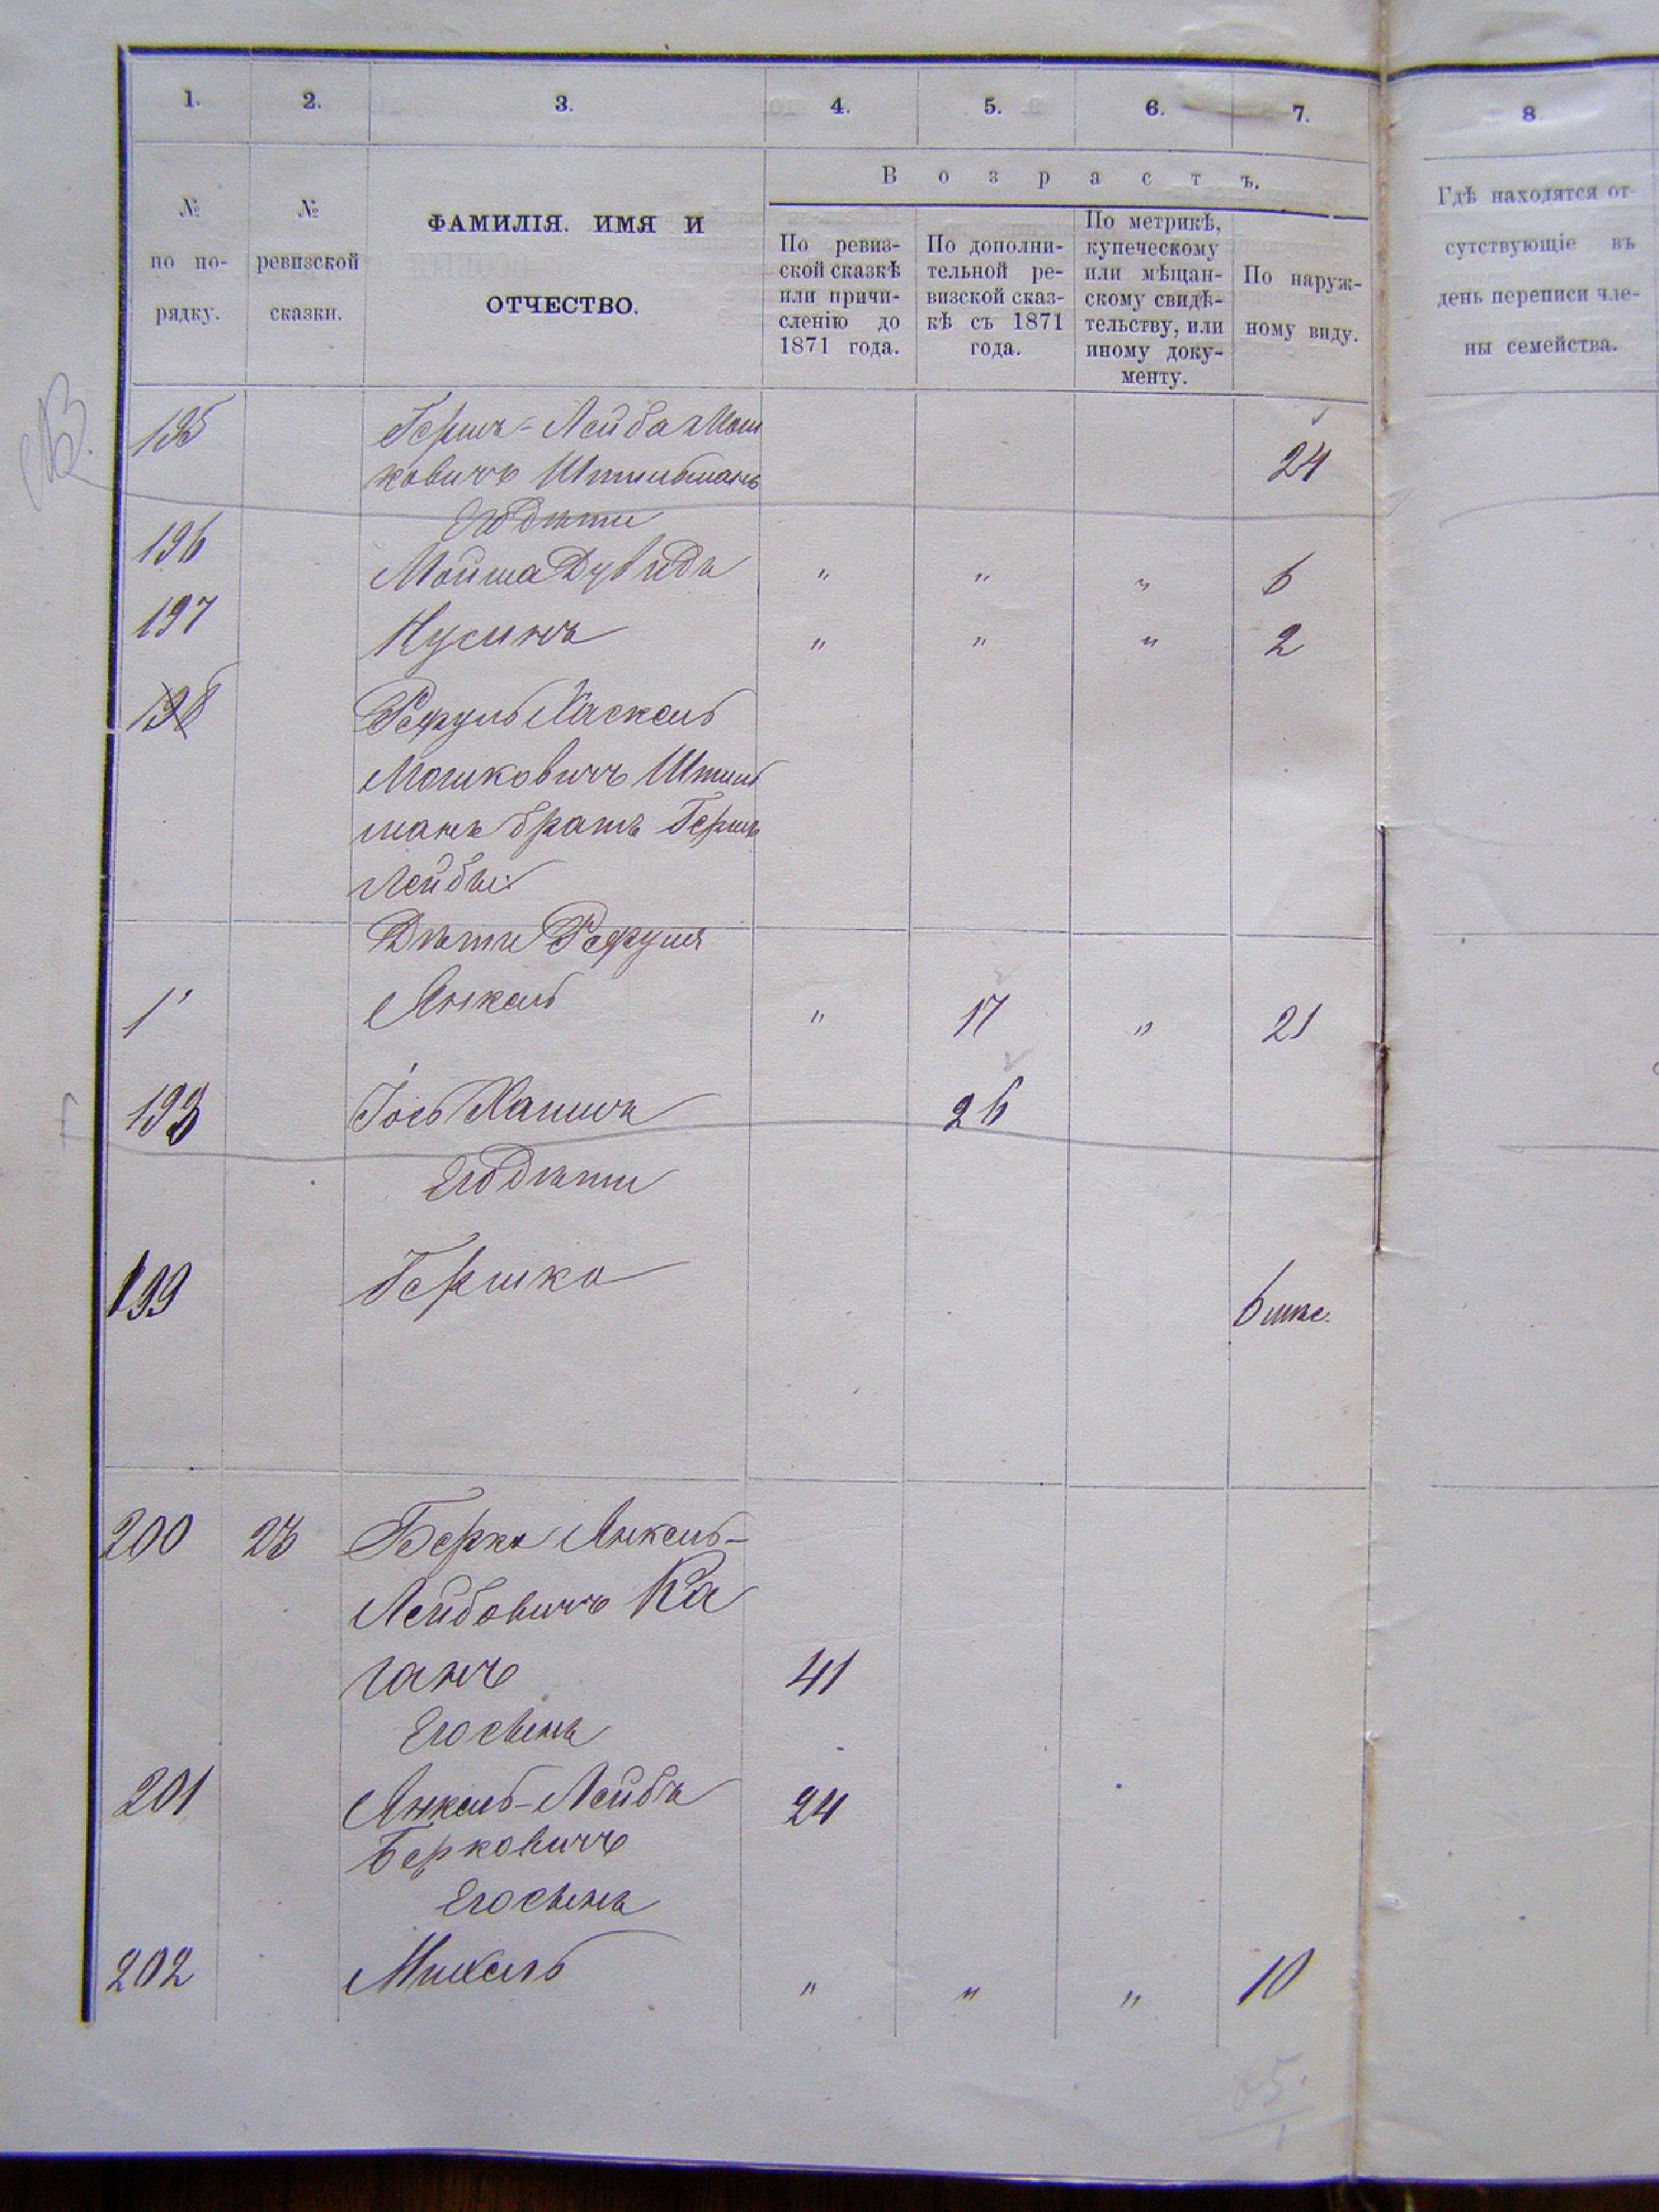 1. 2. 3. 4. 5. 6. 7. 8.
Возрастъ.
№ по по-рядку.
№ ревизской сказки.
ФАМИЛІЯ. ИМЯ И
ОТЧЕСТВО.
По ревиз-
ской сказкѣ
или причи-
сленію до
1871 года.
По дополни-
тельной ре-
визской сказ-
кѣ съ 1871
года.
По метрикѣ,
купеческому
или мѣщан-
скому свидѣ-
тельству, или
иному доку-
менту.
По наруж-
ному виду.
Гдѣ находятся от-
сутствующіе въ
день переписи чле-
ны семейства.
195 Гершъ-Лейба Мош
ковичъ Штильманъ 24
Его дѣти
196 Мойша Дувидъ " " " 6
197 Нусинъ " " " 2
198 Рефуль Хаскель
Мошковичъ Штиль
манъ братъ Гершъ
Лейбы.
Дѣти Рефуля
1 Янкель " 17 " 21
198 Іось Хаимъ 26
Его дѣти
199 Гершко 6 мѣс.
200 23 Берко Янкель-
Лейбовичъ Ка
ганъ 41
Его сынъ
201 Янкель-Лейбъ 24
Берковичъ
Его сынъ
202 Михель " " " 10